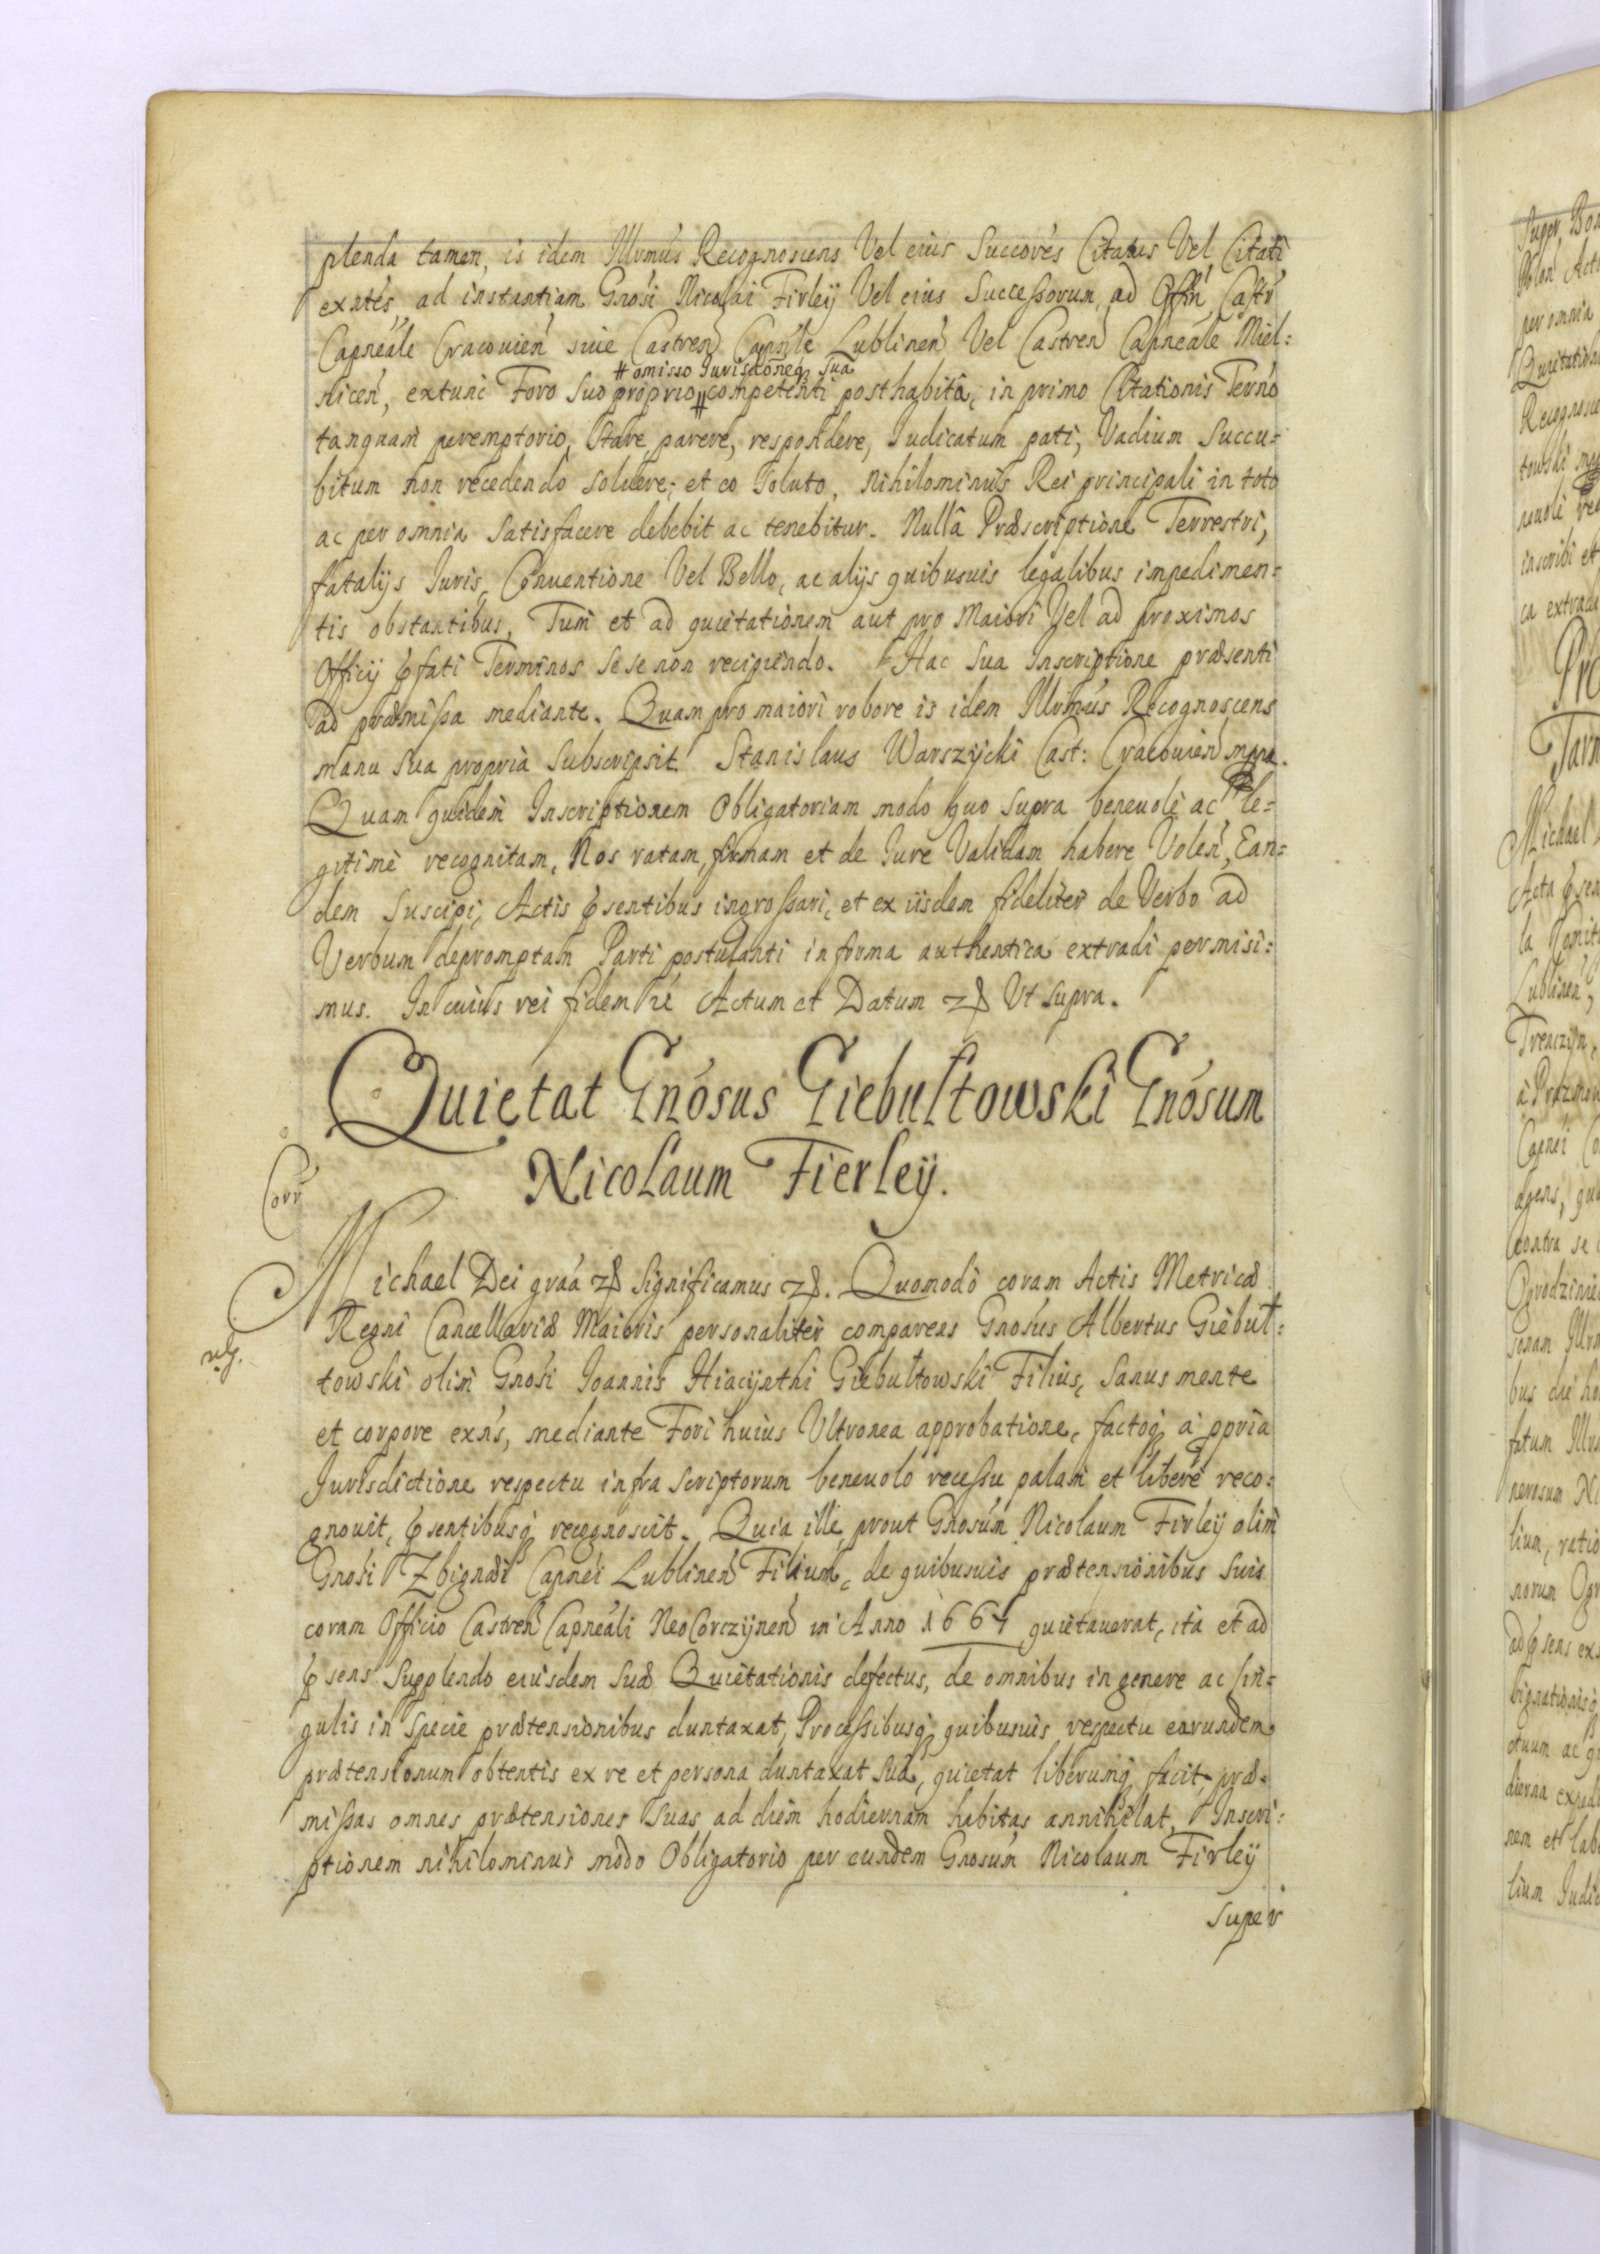 plenda tamen, is idem Illrmús Recognoscens Vel eius Succorés Citatus Vel Citati
exntés, ad instantiam Gnosi Nicolai Firleÿ Vel eius Successorum, ad Offin Castr
Capneále Cracouien siue Castren Capnále Lublinen Vel Castren Capneále Miel=
nicen, extunc Foro suo proprio # competenti posthabitâ, in primo Citationis Terno
# omisso Iurisdoneq sua
tanquam peremptorio, Stare, parere, respondere, Iudicatum pati, Vadium Succu=
bitum non recedendo soluere; et eo soluto, nihilominus Rei principali in toto
ac per omnia Satisfacere debebit ac tenebitur. Nullâ Præscriptione Terrestri,
fatalÿs Iuris, Conuentione Vel Bello, ac alÿs quibusuis legalibus impedimen=
tis obstantibus, Tum et ad quietationem aut pro Maiori Vel ad proximos
Officÿ pfati Terminos se se non recipiendo. Hac Sua Inscriptione præsenti
ad præmissa mediante. Quam pro maiori robore is idem Illrmús Recognoscens
manu sua propria Subscripsit. Stanislaus Warszÿcki Cast: Cracouien mpra.
Quam quidem Inscriptionem Obligatoriam modo quo supra beneuolè ac le=
gitimè recognitam, Nos ratam, firmam et de Iure Validam habere Volen, Ean=
dem Suscipi, Actis psentibus ingrossari, et ex iisdem fideliter de Verbo ad
Verbum depromptam Parti postulanti in forma authentica extradi permisi=
mus. In cuius rei fidem Actum et Datum Ut supra.
Quietat Gnósus Giebułtowski Gnósum
Nicolaum Fierleÿ.
Corr
Michael Dei graá Significamus. Quomodò coram Actis Metricæ
Regni Cancellariæ Maioris personaliter comparens Gnosus Albertus Giebuł=
towski olim Gnosi Ioannis Hiacÿnthi Giebułtowski Filius, sanus mente
et corpore exns, mediante Fori huius Ultronea approbatione, factoq à ppria
Iurisdictione respectu infra scriptorum beneuolo recessu palam et liberè reco=
gnouit, psentibusq recognoscit. Quia ille, prout Gnosum Nicolaum Firleÿ olim
Gnosi Zbignæi Capnei Lublinen Filium, de quibusuis prætensionibus suis
coram Officio Castren Capneáli NeoCorczÿnen in Anno 1664 quietauerat, ita et ad
psens Supplendo eiusdem suæ Quietationis defectus, de omnibus in genere ac sin=
gulis in specie prætensionibus duntaxat, Processibusq quibusuis respectu earundem
prætensionum obtentis ex re et persona duntaxat suâ, quietat liberumq facit, præ=
missas omnes prætensiones suas ad diem hodiernam habitas annihilat, Inscri=
ptionem nihilominus modo Obligatorio per eundem Gnosum Nicolaum Firleÿ
super